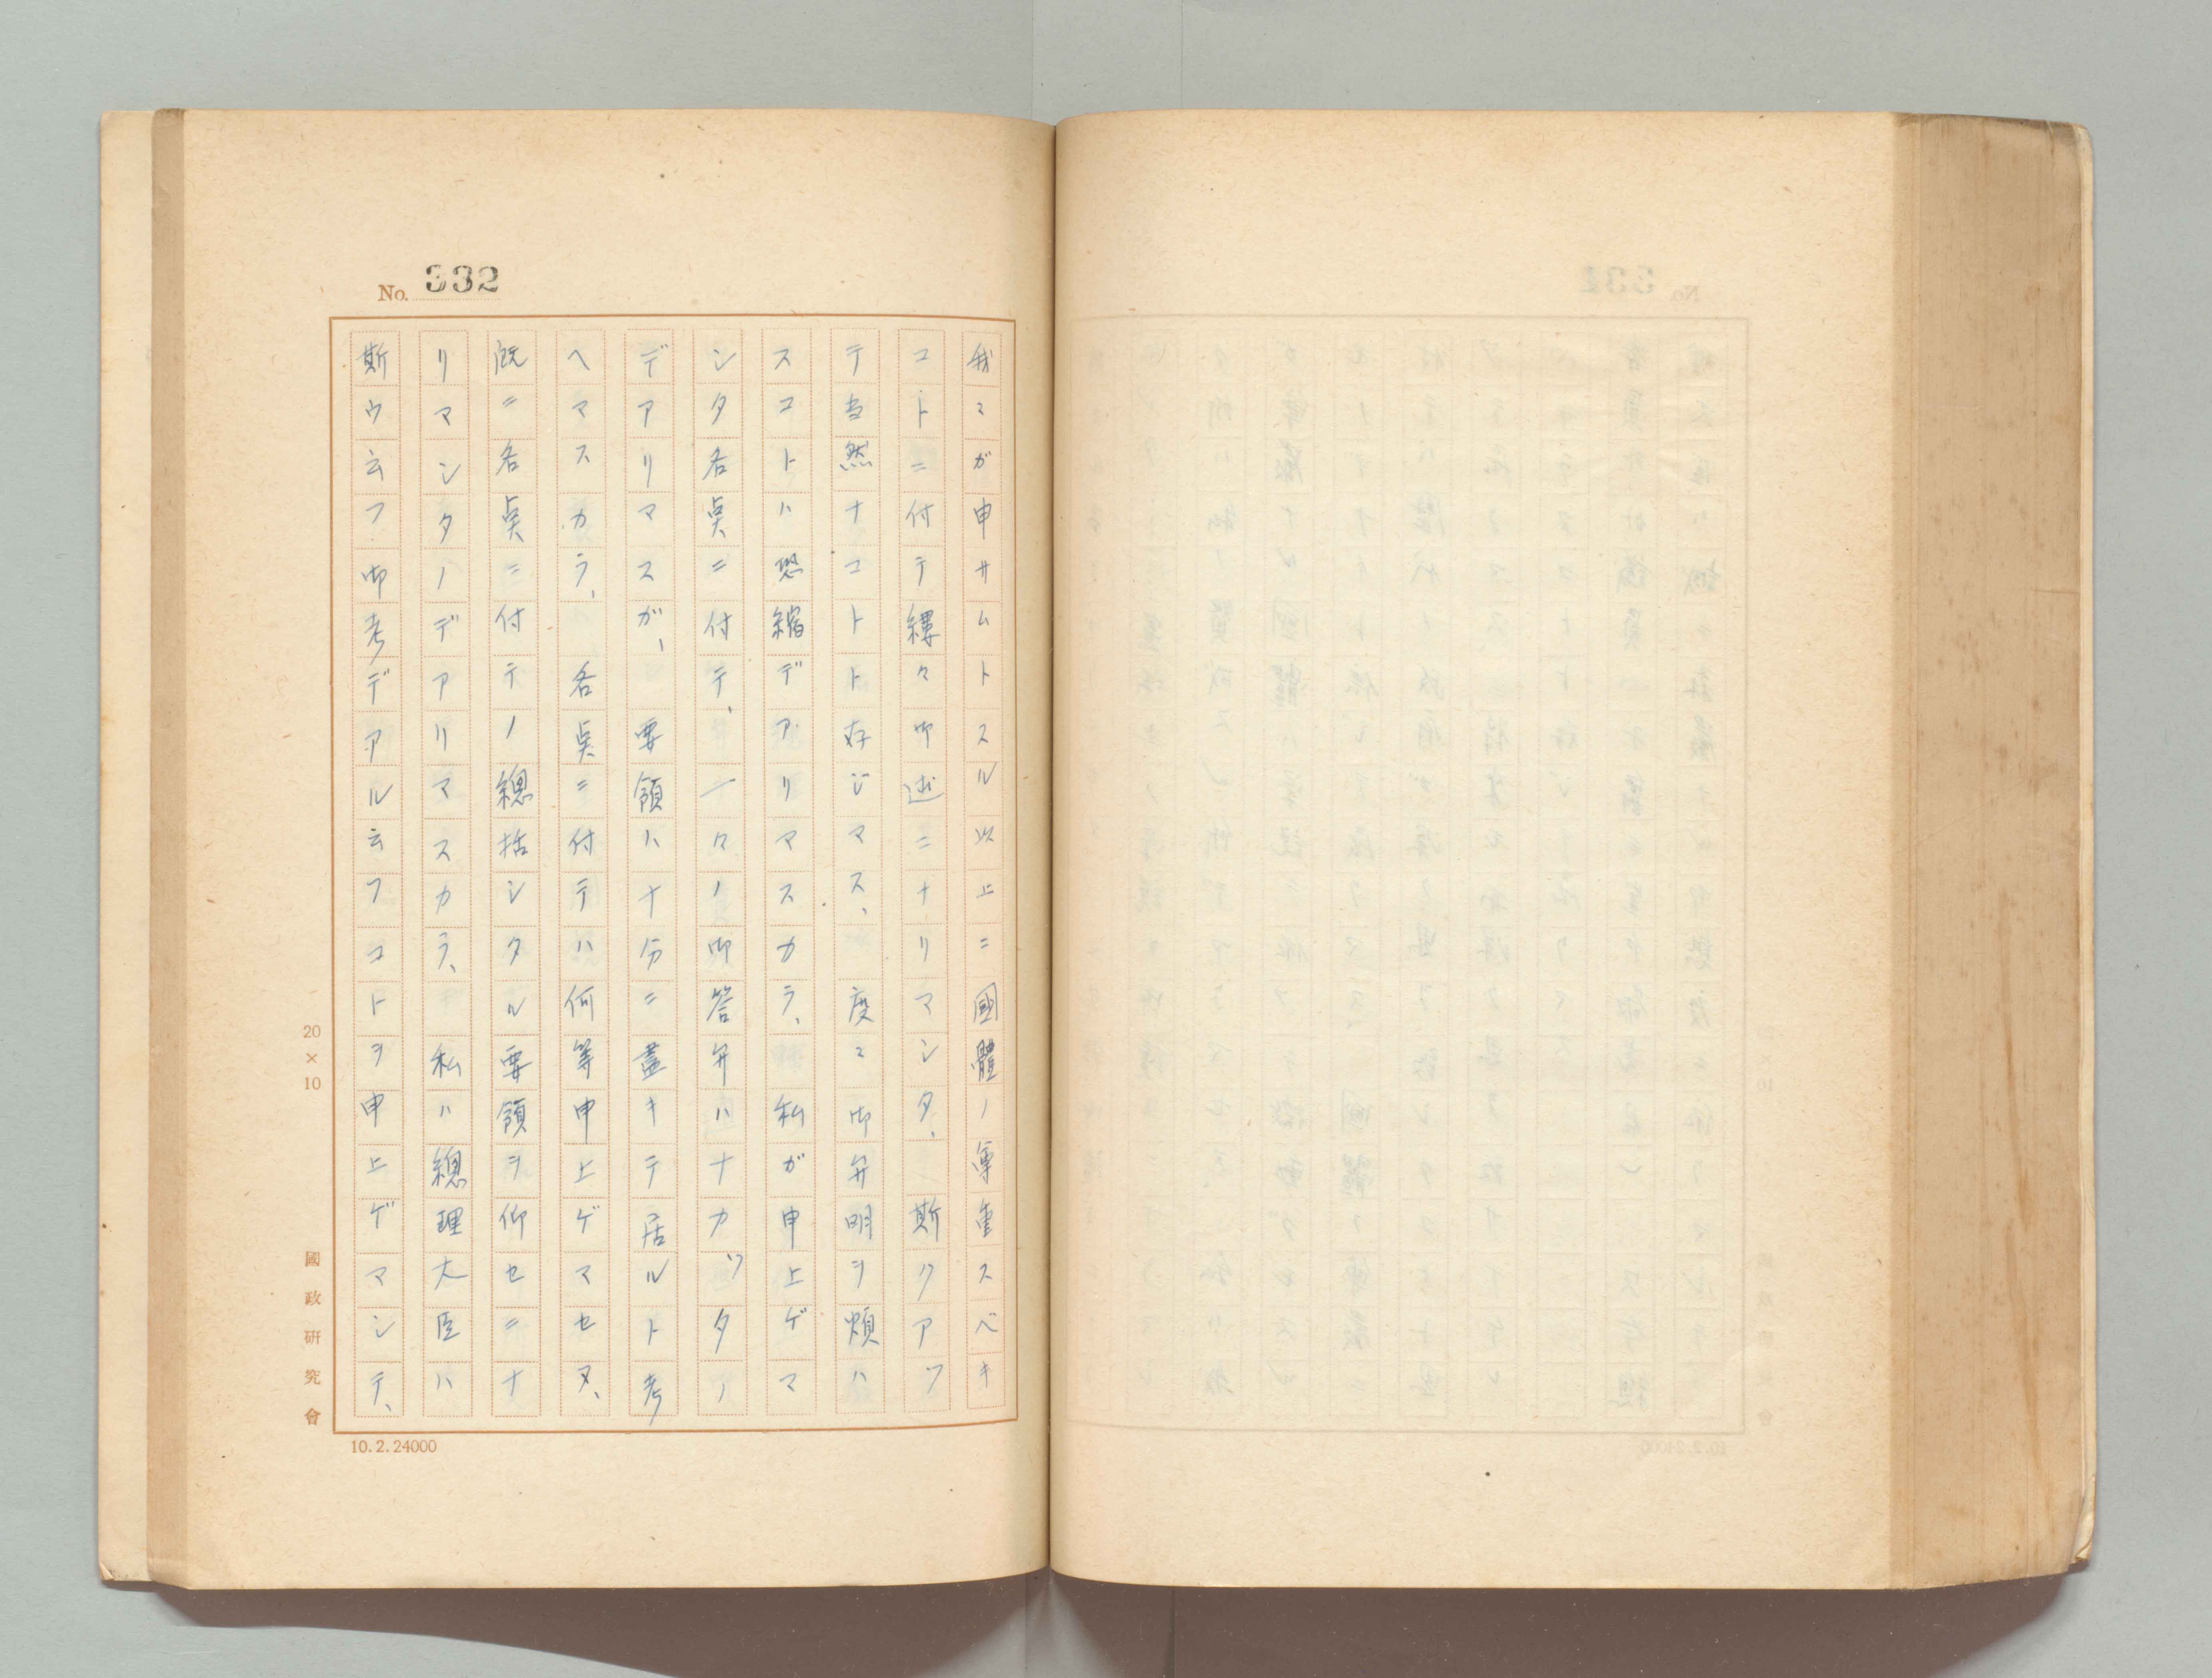 No. 332
我々ガ申サムトスル以上ニ國體ノ尊重スベキ
コトニ付テ縷々御述ニナリマシタ、斯クアッ
テ当然ナコトト存ジマス、度々御弁明ヲ煩ハ
スコトハ恐縮デアリマスカラ、私ガ申上ゲマ
シタ各奌ニ付テ、一々ノ御答弁ハナカッタノ
デアリマスガ、要領ハ十分ニ盡キテ居ルト考
ヘマスカラ、各奌ニ付テハ何等申上ゲマセヌ、
既ニ各奌ニ付テノ總括シタル要領ヲ仰セニナ
リマシタノデアリマスカラ、私ハ總理大臣ハ
斯ウ云フ御考デアル云フコトヲ申上ゲマシテ、
20×10
國政研究會
10.2.24000